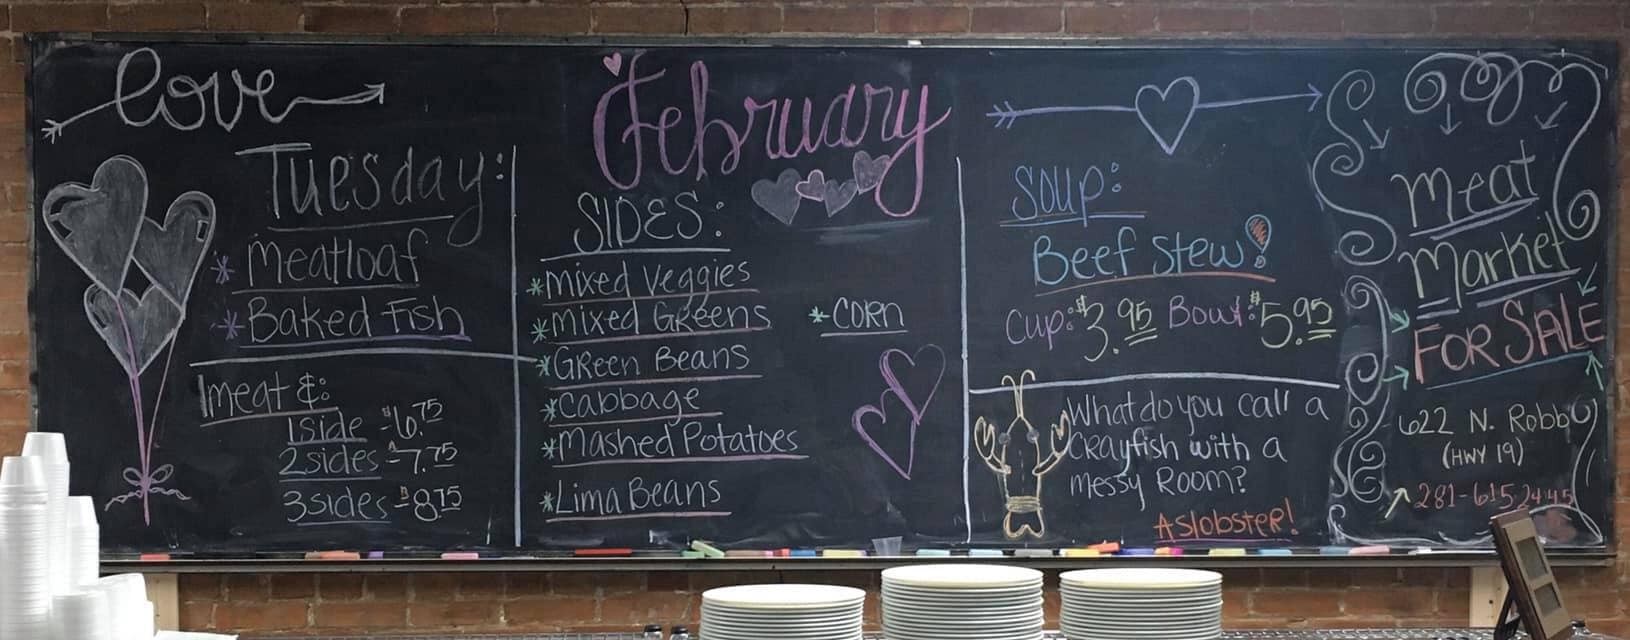 love
Tuesday:
* Meatloaf
* Baked Fish
meat &:
1 side - $6.75
2 sides - $7.75
3 sides - $8.75
February
SIDES:
* Mixed Veggies
* Mixed Greens
* CORN
* Green Beans
* Cabbage
* Mashed Potatoes
* Lima Beans
Soup:
Beef Stew!
Cup: $3.95 Bowl: $5.95
What do you call a
Crayfish with a
messy Room?
A slobster!
Meat
Market
FOR SALE
622 N. Robb
(HWY 19)
281-615 2445